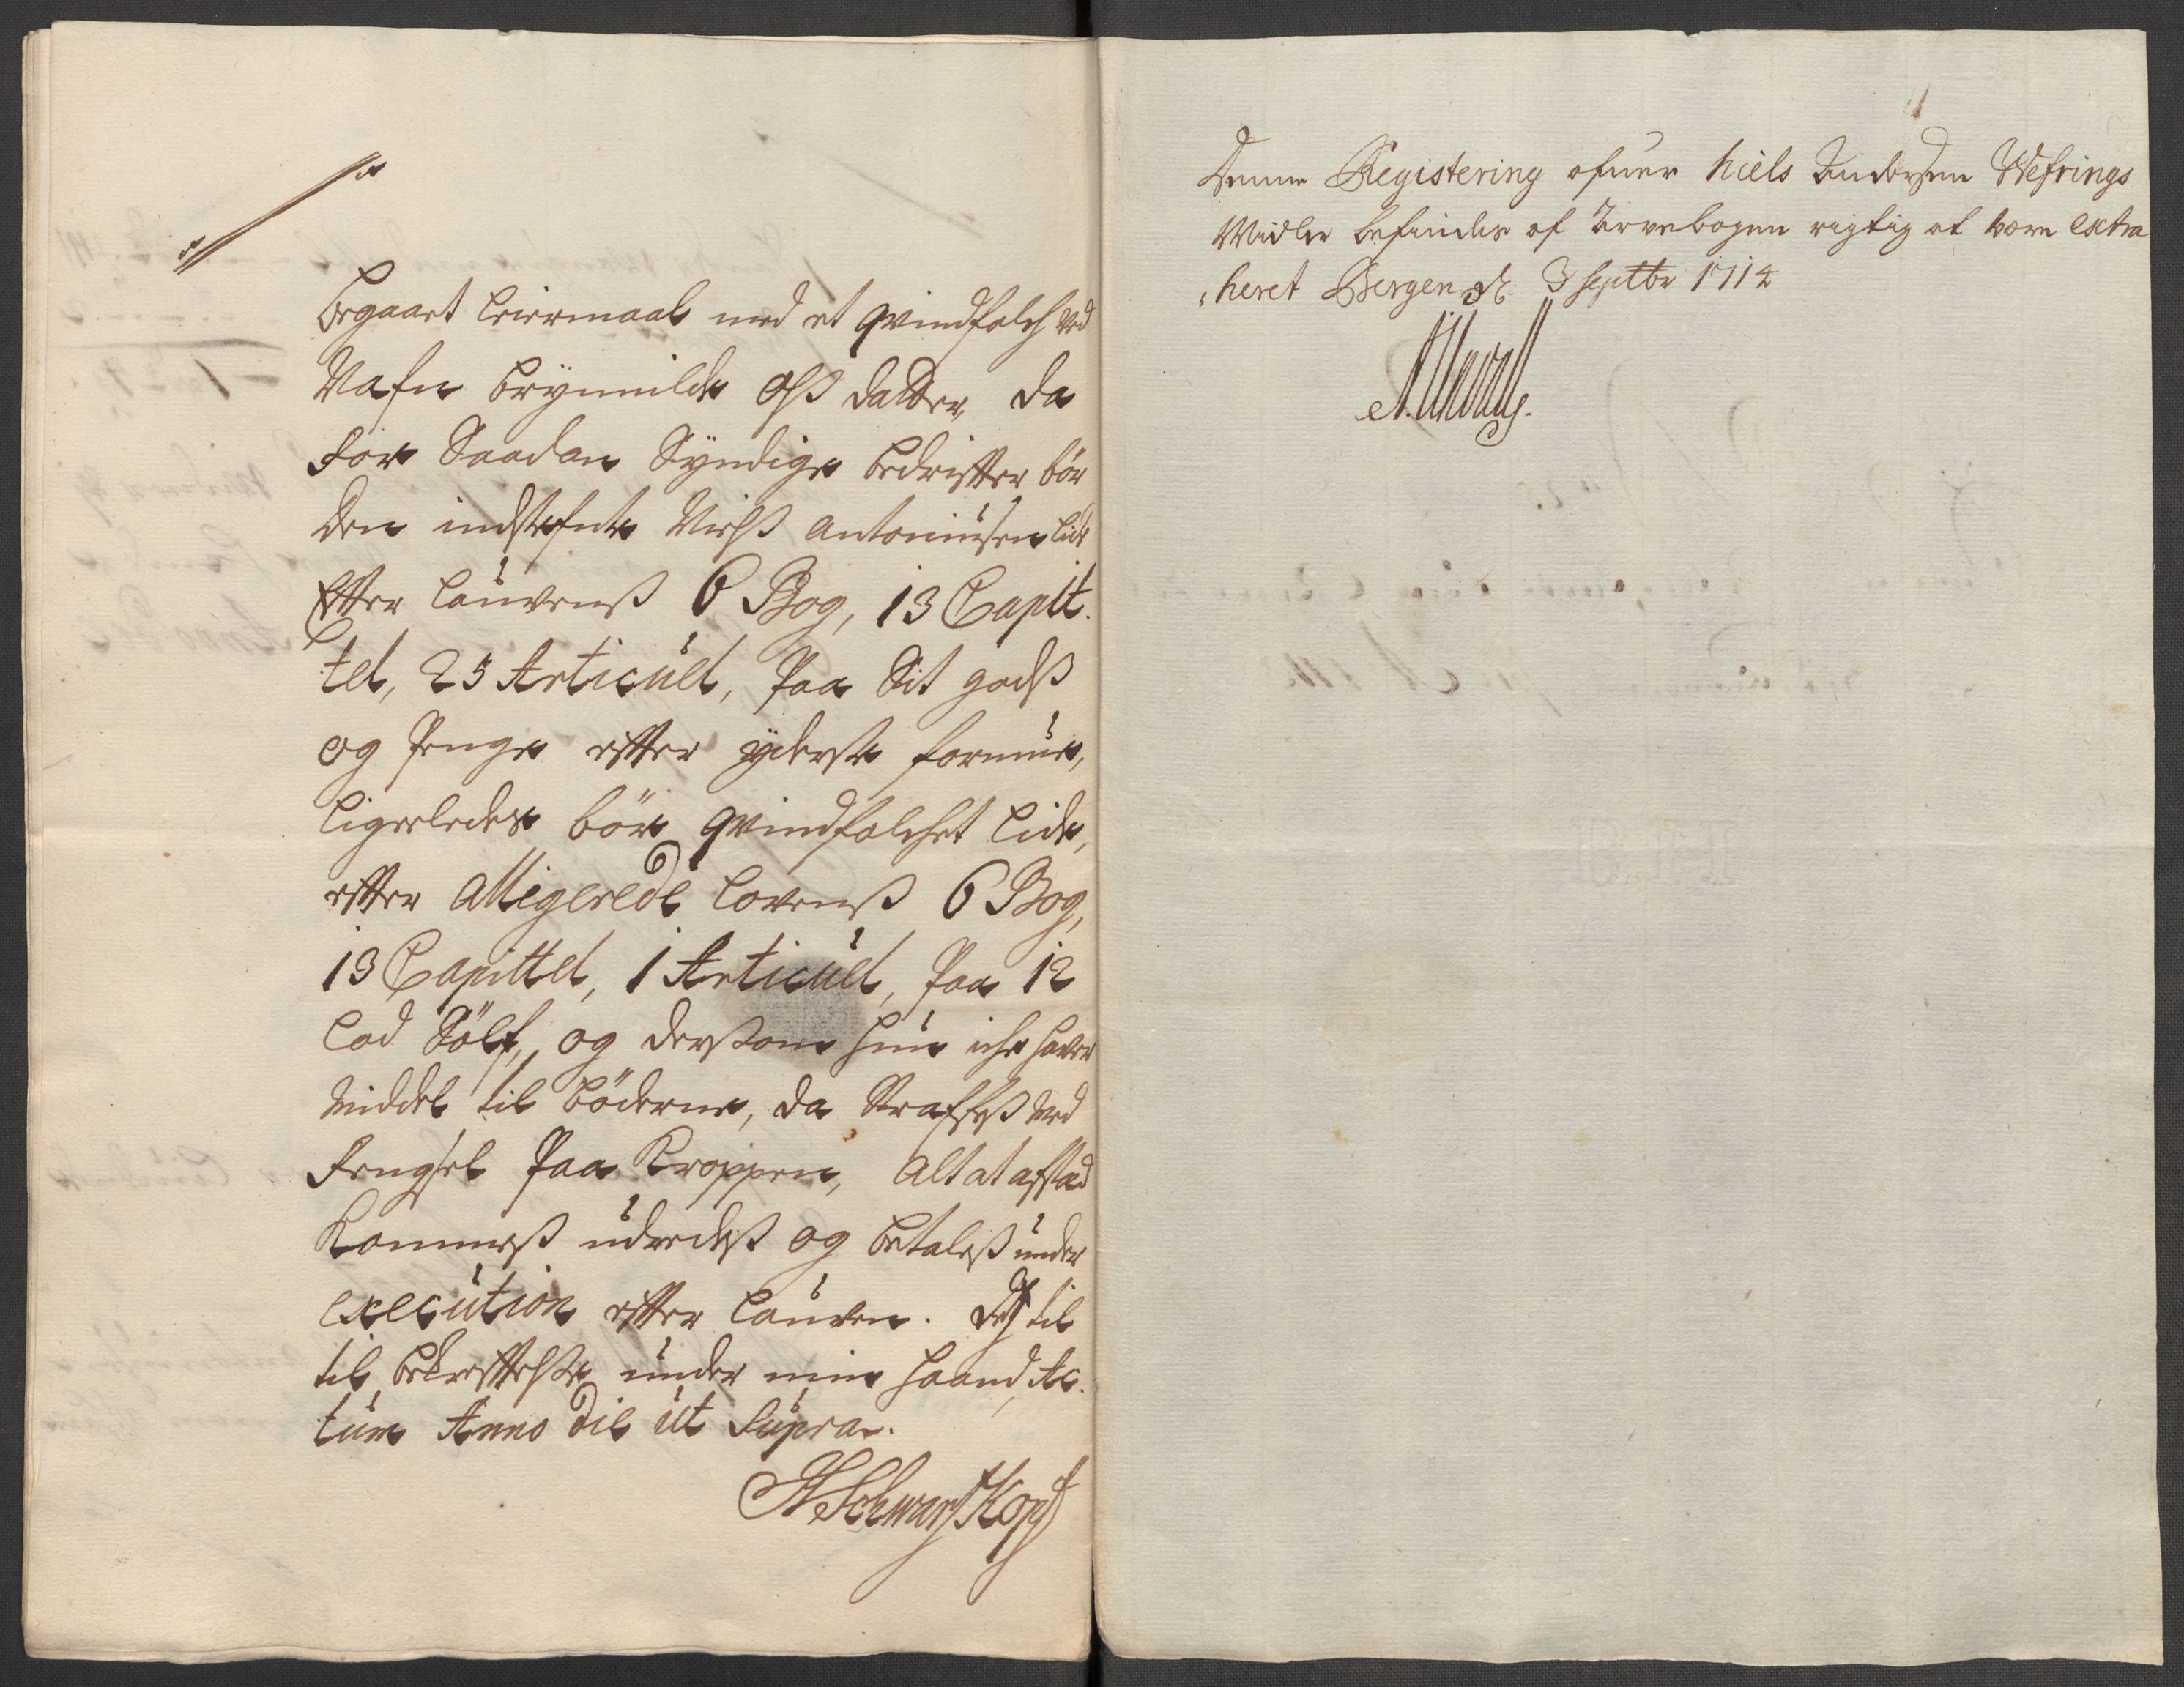 begaaet Leiermaal med et qvindfolch ved
Nafn Brynnilde Olß datter, da
for Saadan Syndige bedrifter bör
den indstefnte Nielß Antoniusen lide
Efter Lauvenß 6 Bog, 13 Capit.
tel, 25 Articuel, Paa Sit godß
og Penge efter yderste formue,
Ligeeledes bör qvindfolchet Lide,
efter Alligerede Lovenß 6 Bog,
13 Capittel, 1 Articuel, Paa 12
Lod Sölf, og dersom hun iche haver
Middel til Böderne, da Straffeß ved
Fengsel Paa Kroppen, Alt at afstad
Kommeß udredeß og betaleß under
execution efter Lauven. Deß til
til bekreftelße under min Haand, Ac.
tum Anno Die ut Supra.
HSchwartzKopf
Denne Registering ofuer Niels Andersen Wefrings
Midler befindes af Arvebogen rigtig at være extra
heret Bergen d. 3 Septbr 1714